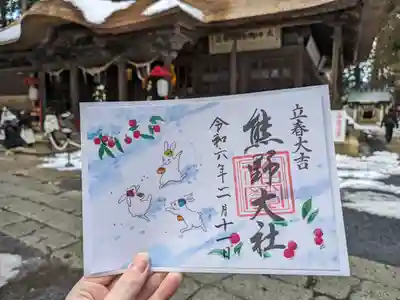 立春大吉
熊野大社
令和六年二月十一日